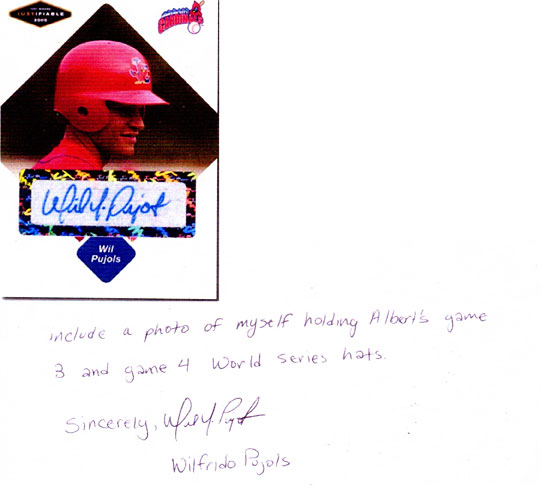 JUSTIFIABLE
Wil Y. Pujols
Wil
Pujols
include a photo of myself holding Albert's game
3 and game 4 World Series hats.
Sincerely, Wil Y. Pujols
Wilfrido Pujols